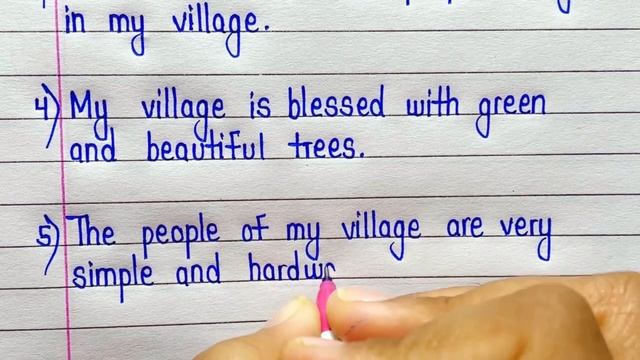 in my village.
4) My village is blessed with green
and beautiful trees.
5) The people of my village are very
simple and hardw